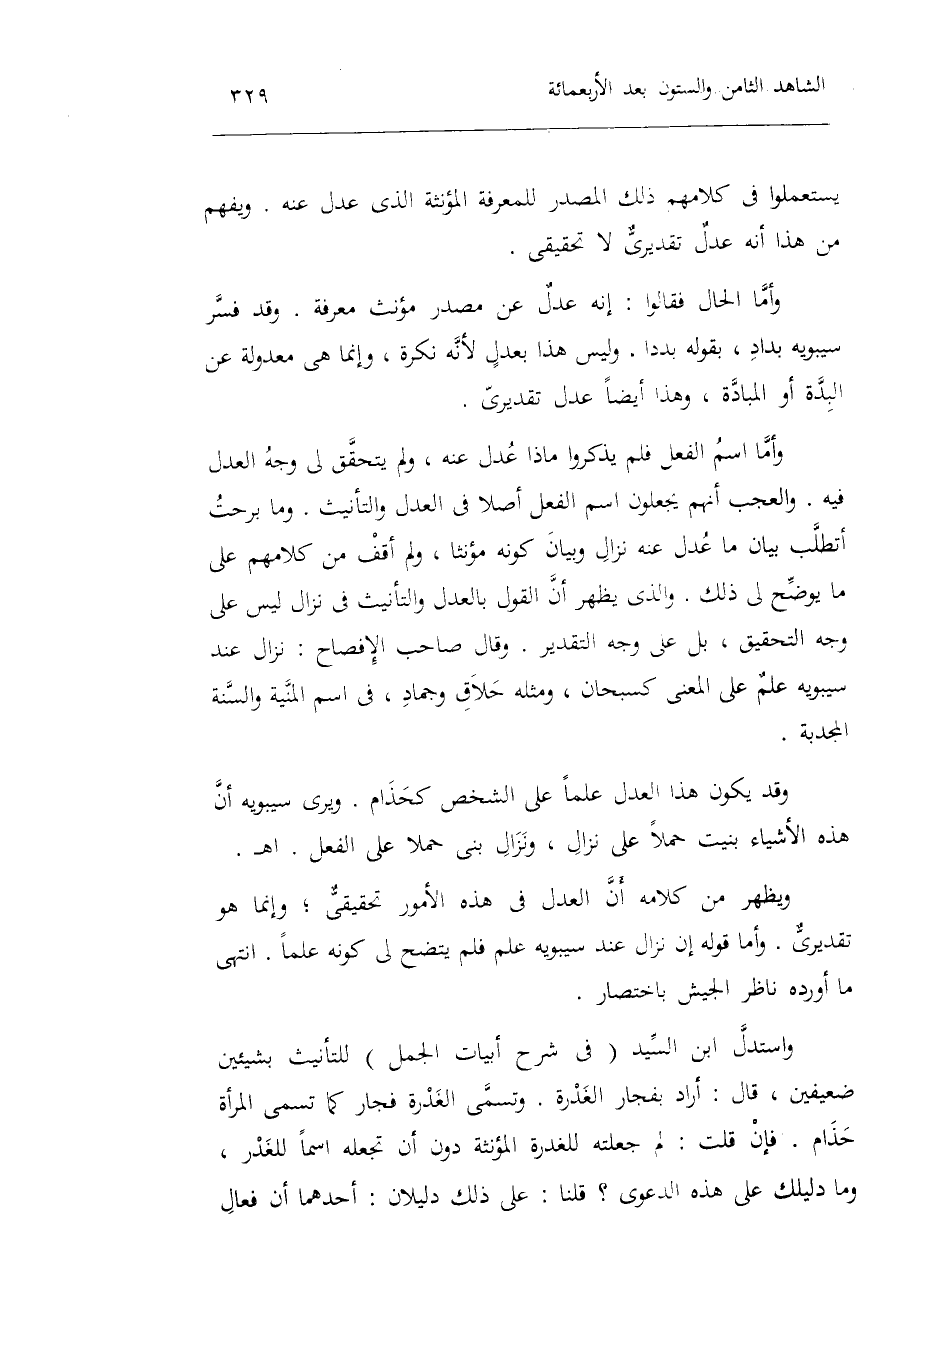 الشاهد الثامن والستون بعد الأربعمائة ٣٢٩
يستعملوا فى كلامهم ذلك المصدر للمعرفة المؤنثة الذى عدل عنه . ويفهم
من هذا أنه عدلٌ تقديرىٌّ لا تحقيقى .
وأمَّا الحال فقالوا : إنه عدلٌ عن مصدر مؤنث معرفة . وقد فسَّر
سيبويه بدادِ ، بقوله بددا . وليس هذا بعدلٍ لأنَّه نكرة ، وإنما هى معدولة عن
البِدَّة أو المبادَّة ، وهذا أيضاً عدل تقديرىّ .
وأمَّا اسمُ الفعل فلم يذكروا ماذا عُدل عنه ، ولم يتحقَّق لى وجهُ العدل
فيه . والعجب أنهم يجعلون اسم الفعل أصلا فى العدل والتأنيث . وما برحتُ
أتطلَّب بيان ما عُدل عنه نزالِ وبيانَ كونه مؤنثا ، ولم أقفْ من كلامهم على
ما يوضِّح لى ذلك . والذى يظهر أنَّ القول بالعدل والتأنيث فى نزال ليس على
وجه التحقيق ، بل على وجه التقدير . وقال صاحب الإِفصاح : نزال عند
سيبويه علمٌ على المعنى كسبحان ، ومثله حَلَاقِ وجمادِ ، فى اسم المنَّية والسَّنة
المجدبة .
وقد يكون هذا العدل علماً على الشخص كحَذَام . ويرى سيبويه أنَّ
هذه الأشياء بنيت حملاً على نزالِ ، ونَزَالِ بنى حملا على الفعل . اهـ .
ويظهر من كلامه أَنَّ العدل فى هذه الأمور تحقيقىٌّ ؛ وإنما هو
تقديرىٌّ . وأما قوله إن نزال عند سيبويه علم فلم يتضح لى كونه علماً . انتهى
ما أورده ناظر الجيش باختصار .
واستدلَّ ابن السِّيد ( فى شرح أبيات الجمل ) للتأنيث بشيئين
ضعيفين ، قال : أراد بفجار الغَدْرة . وتسمَّى الغَدْرة فجار كما تسمى المرأة
حَذَام . فإنْ قلت : لم جعلته للغدرة المؤنثة دون أن تجعله اسماً للغَدْر ،
وما دليلك على هذه الدعوى ؟ قلنا : على ذلك دليلان : أحدهما أن فعالِ